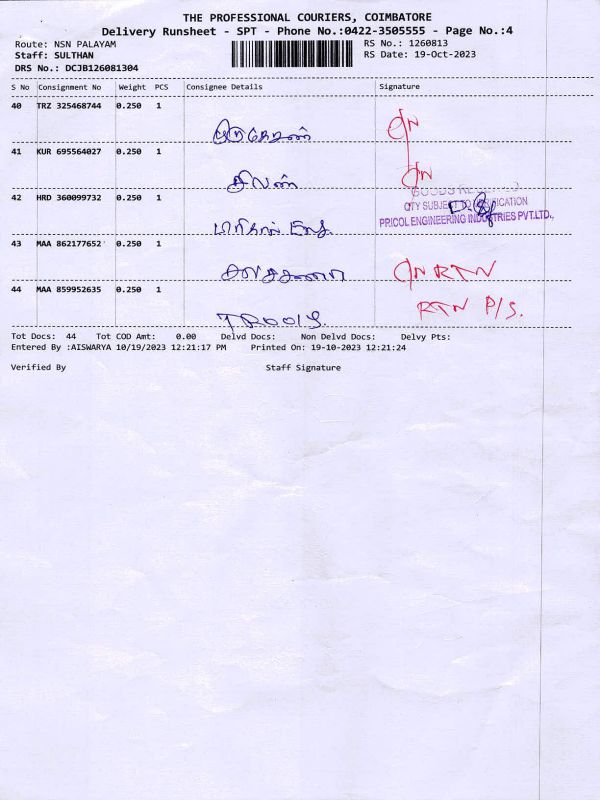 THE PROFESSIONAL COURIERS, COIMBATORE
Delivery Runsheet - SPT - Phone No.:0422-3505555 - Page No.:4
Route: NSN PALAYAM
RS No.: 1260813
Staff: SULTHAN
RS Date: 19-Oct-2023
DRS No.: DCJB126081304
S No Consignment No Weight PCS Consignee Details Signature
40 TRZ 325468744 0.250 1
41 KUR 695564027 0.250 1
42 HRD 360099732 0.250 1
GOODS RECEIVED
QTY SUBJECT TO VERIFICATION
PRICOL ENGINEERING INDUSTRIES PVT.LTD.,
43 MAA 862177652 0.250 1
RTN
44 MAA 859952635 0.250 1
RTN P/S.
Tot Docs: 44 Tot COD Amt: 0.00 Delvd Docs: Non Delvd Docs: Delvy Pts:
Entered By :AISWARYA 10/19/2023 12:21:17 PM Printed On: 19-10-2023 12:21:24
Verified By Staff Signature